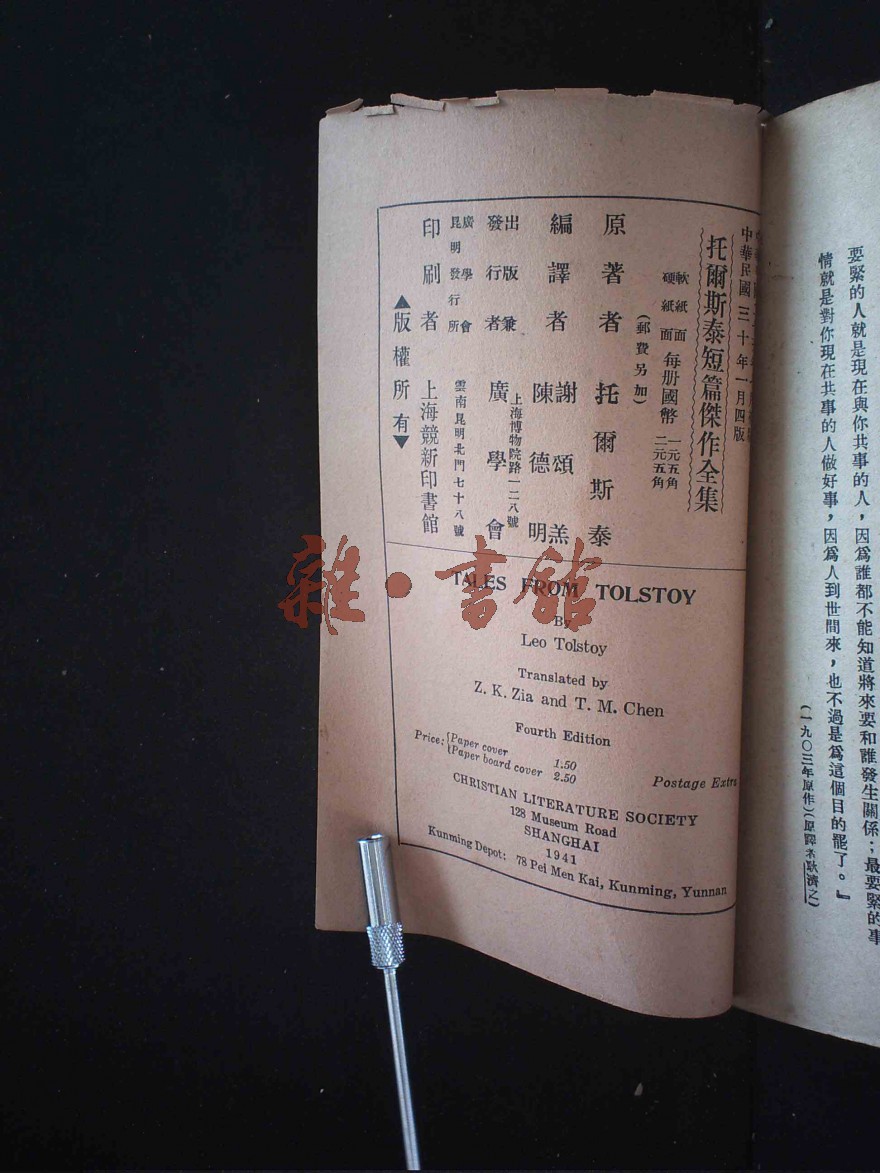 要緊的人就是現在與你共事的人，因爲誰都不能知道將來要和誰發生關係；最要緊的事
情就是對你現在共事的人做好事，因爲人到世間來，也不過是爲這個目的罷了。』
(一九〇三年原作)(原譯者耿濟之)
中華民國三十年一月四版
托爾斯泰短篇傑作全集
軟紙面 每册國幣 一元五角
硬紙面 二元五角
(郵費另加)
原著者 托爾斯泰
編譯者 謝頌羔
陳德明
出版兼
發行者 廣學會
上海博物院路一二八號
廣學會
昆明發行所 雲南昆明北門七十八號
印刷者 上海競新印書館
▲版權所有▼
TALES FROM TOLSTOY
By
Leo Tolstoy
Translated by
Z. K. Zia and T. M. Chen
Fourth Edition
Price: {Paper cover 1.50
{Paper board cover 2.50
Postage Extra
CHRISTIAN LITERATURE SOCIETY
128 Museum Road
SHANGHAI
1941
Kunming Depot: 78 Pei Men Kai, Kunming, Yunnan
雜·書館